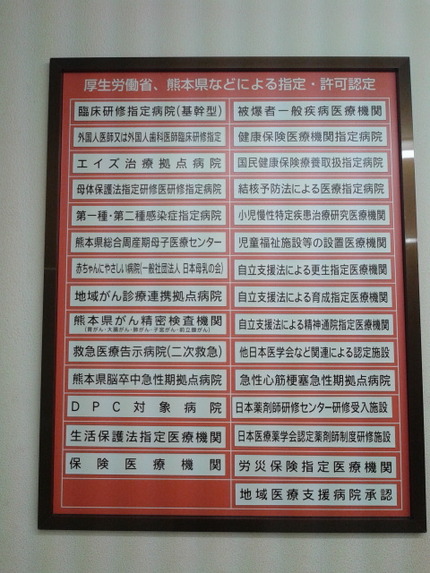 厚生労働省、熊本県などによる指定・許可認定
臨床研修指定病院(基幹型)
外国人医師又は外国人歯科医師臨床研修指定
エイズ治療拠点病院
母体保護法指定研修医研修指定病院
第一種・第二種感染症指定病院
熊本県総合周産期母子医療センター
赤ちゃんにやさしい病院(一般社団法人 日本母乳の会)
地域がん診療連携拠点病院
熊本県がん精密検査機関
(胃がん・大腸がん・肺がん・子宮がん・前立腺がん)
救急医療告示病院(二次救急)
熊本県脳卒中急性期拠点病院
DPC対象病院
生活保護法指定医療機関
保険医療機関
被爆者一般疾病医療機関
健康保険医療機関指定病院
国民健康保険療養取扱指定病院
結核予防法による医療指定病院
小児慢性特定疾患治療研究医療機関
児童福祉施設等の設置医療機関
自立支援法による更生指定医療機関
自立支援法による育成指定医療機関
自立支援法による精神通院指定医療機関
他日本医学会など関連による認定施設
急性心筋梗塞急性期拠点病院
日本薬剤師研修センター研修受入施設
日本医療薬学会認定薬剤師制度研修施設
労災保険指定医療機関
地域医療支援病院承認